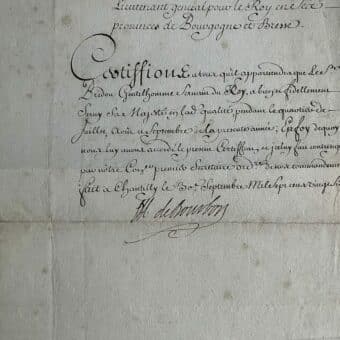 Lieutenant general pour le Roy en ses
provinces de Bourgogne et Bresse
Certiffions a tous qu'il appartiendra que le Sr
Bredon Gentilhomme servant du Roy, a bien et fidellement
servy Sa Majesté en lad. qualité pendant le quartier de
Juillet, Aoust et Septembre de la presente année; En foy de quoy
nous luy avons accordé le present Certifficat, et iceluy fait contresigner
par nôtre Coner premier Secretaire ordre de nos commandements
fait a Chantilly le 30e Septembre Mil sept cens vingt
de Bourbon